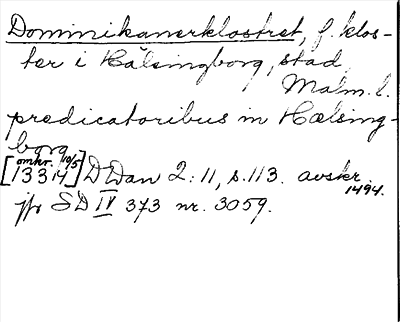 Dominikanerklostret, f. klos-
ter i Hälsingborg, stad,
Malm. l.
predicatoribus in Hælsing-
borg
[omkr. 10/5 1334] DDan 2:11, s. 113. avskr. 1494.
jfr SD IV 373 nr. 3059.